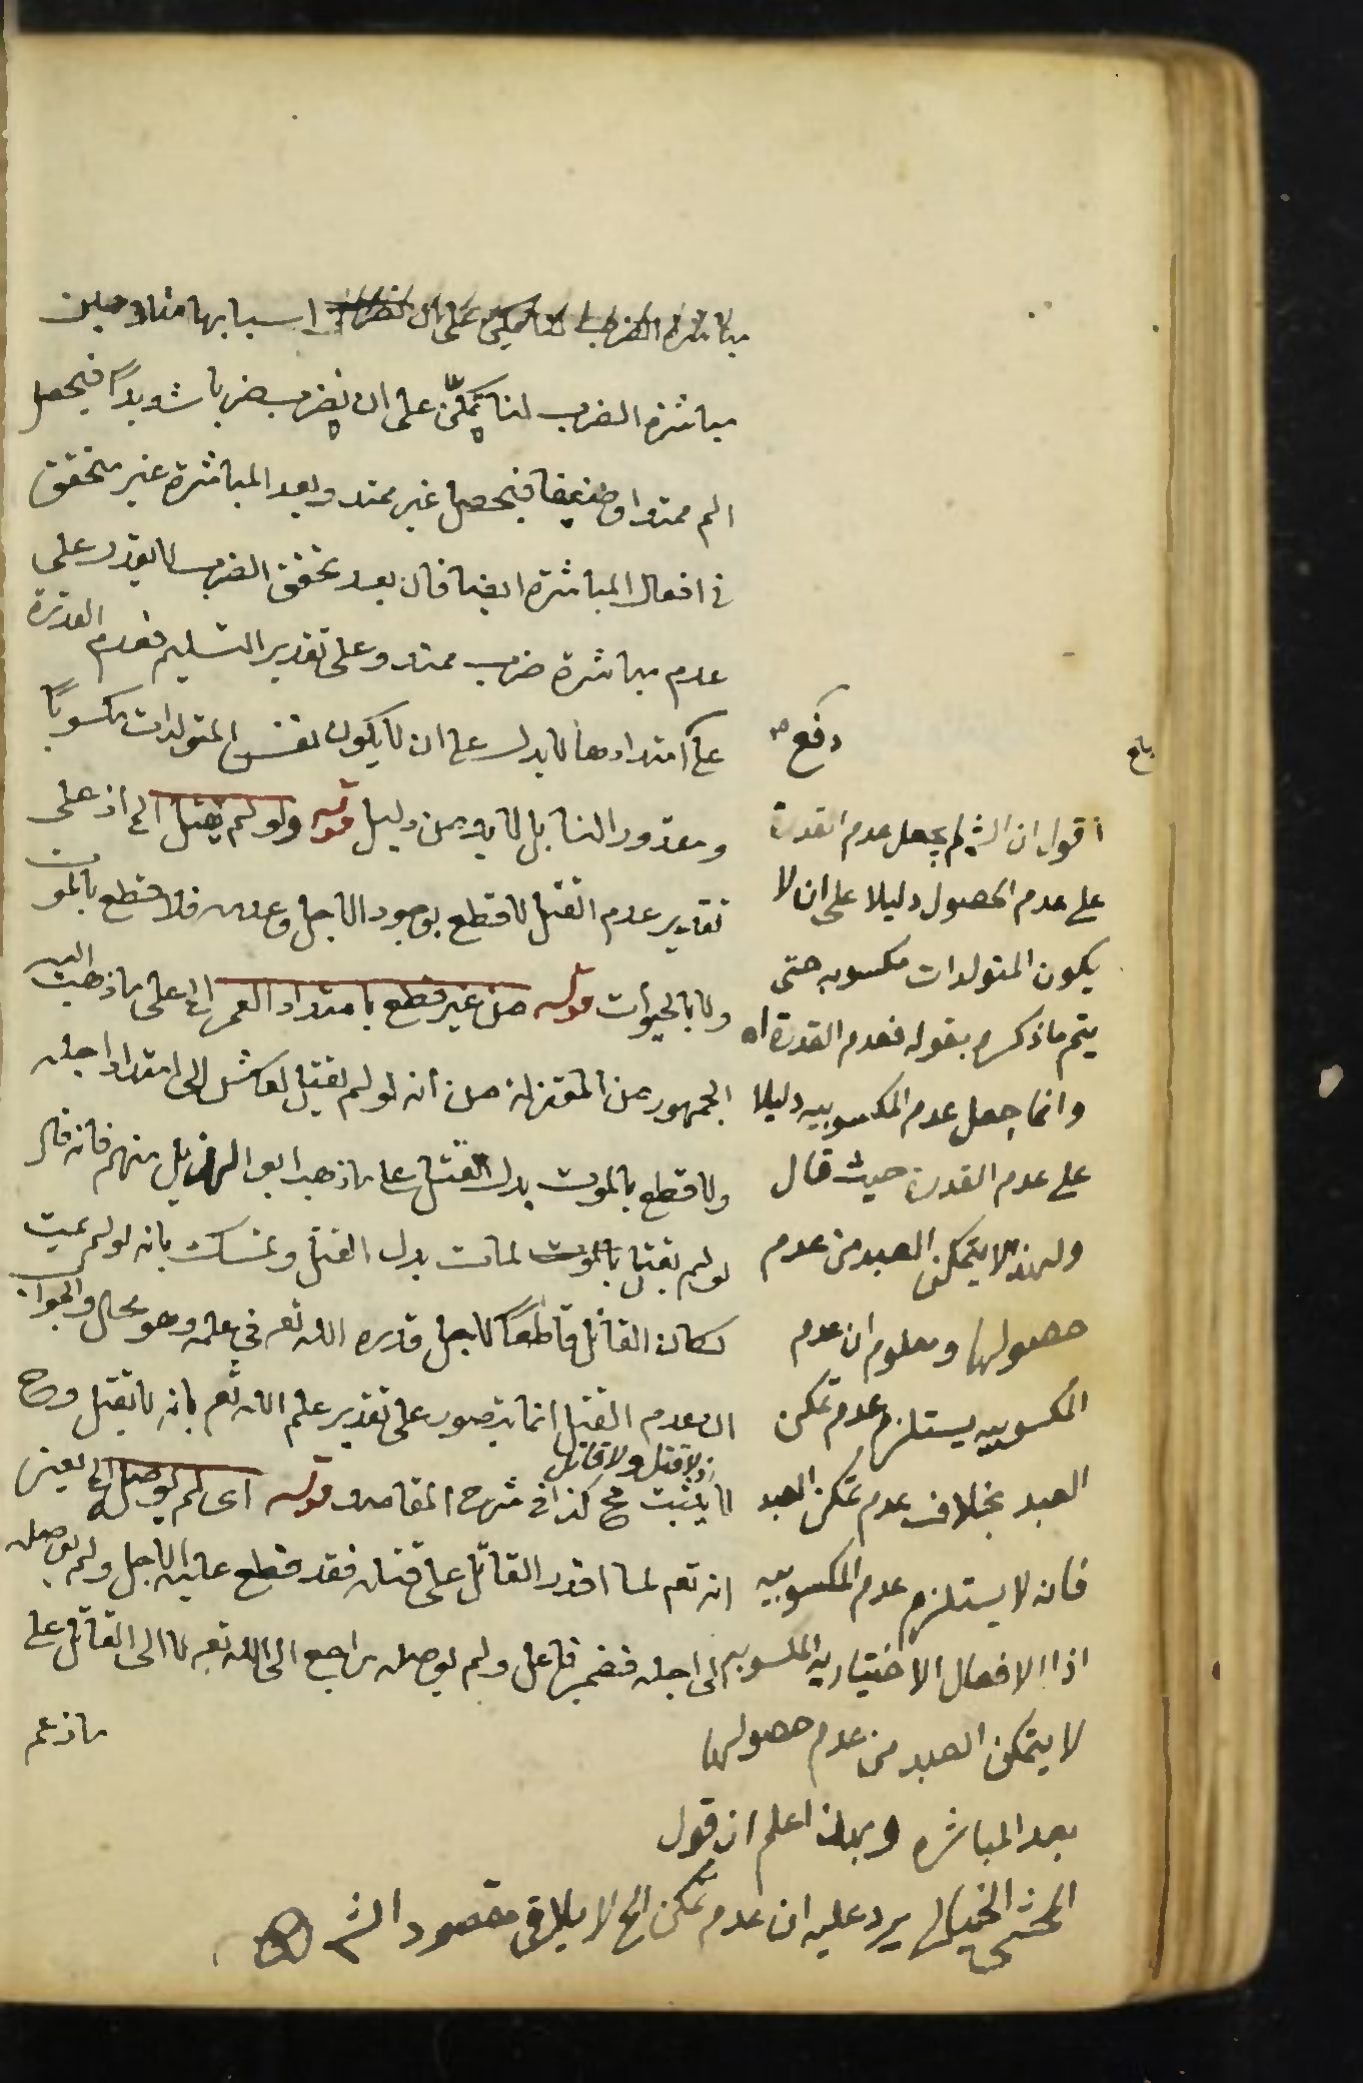 مباشرة الضرب لنا تمكن على ان اسبابها منا وحين
مباشرة الضرب لنا تمكّن على ان نضرب ضربا شديداً فيحصل
الم ممتد او ضعيفا فيحصل غير ممتد وبعد المباشرة غير متحقق
في افعال المباشرة ايضا فان بعد تحقق الضرب لا يقدر على
عدم مباشرة ضرب ممتد وعلى تقدير التسليم فعدم القدرة
على امتدادها لا يدل على ان لا يكون نفس المتولدات مكسوباً
ومقدور النا بل لا بد من دليل قوله ولو لم يقتل الخ اذ على
تقدير عدم القتل لا قطع بوجود الاجل وعدمه فلا قطع بالموت
ولا بالحيوات قوله من غير قطع بامتداد العمر الخ على ما ذهبت اليه
الجمهور من المعتزلة من انه لو لم يقتل لعاش الى امتداد اجله
ولا قطع بالموت بدل القتل على ما ذهب ابو الهذيل منهم فانه قال
لو لم يقتل بالموت لمات بدل القتل وتمسك بانه لو لم يمت
لكان القاتل قاطعاً لاجل قدره الله تعم في علمه وهو محال والجواب
ان عدم القتل انما يتصور على تقدير علم الله تعم بانه لا يقتل وح
اذ لا قتل ولا قاتل
لا يثبت مح كذا في شرح المقاصد قوله اى لم يوصل الخ يعني
انه تعم لما اقدر القاتل على قتله فقد قطع عليه الاجل ولم يوصله
الى اجله فضمير فاعل ولم يوصله راجع الى الله تعم لا الى القاتل على
ما زعم
دفع
اقول ان الش لم يجعل عدم القدرة
على عدم الحصول دليلا على ان لا
يكون المتولدات مكسوبه حتى
يتم ما ذكره بقوله فعدم القدرة اه
وانما جعل عدم المكسوبيه دليلا
على عدم القدرة حيث قال
ولهذا لا يتمكن العبد من عدم
حصولها ومعلوم ان عدم
المكسوبيه يستلزم عدم تمكن
العبد بخلاف عدم تمكن العبد
فانه لا يستلزم عدم المكسوبيه
اذ الافعال الاختياريه المكسوبه
لا يتمكن العبد من عدم حصولها
بعد المباشره وبهذا اعلم ان قول
المحشى الخيالى يرد عليه ان عدم تمكن الخ لا يلاقى مقصود الش